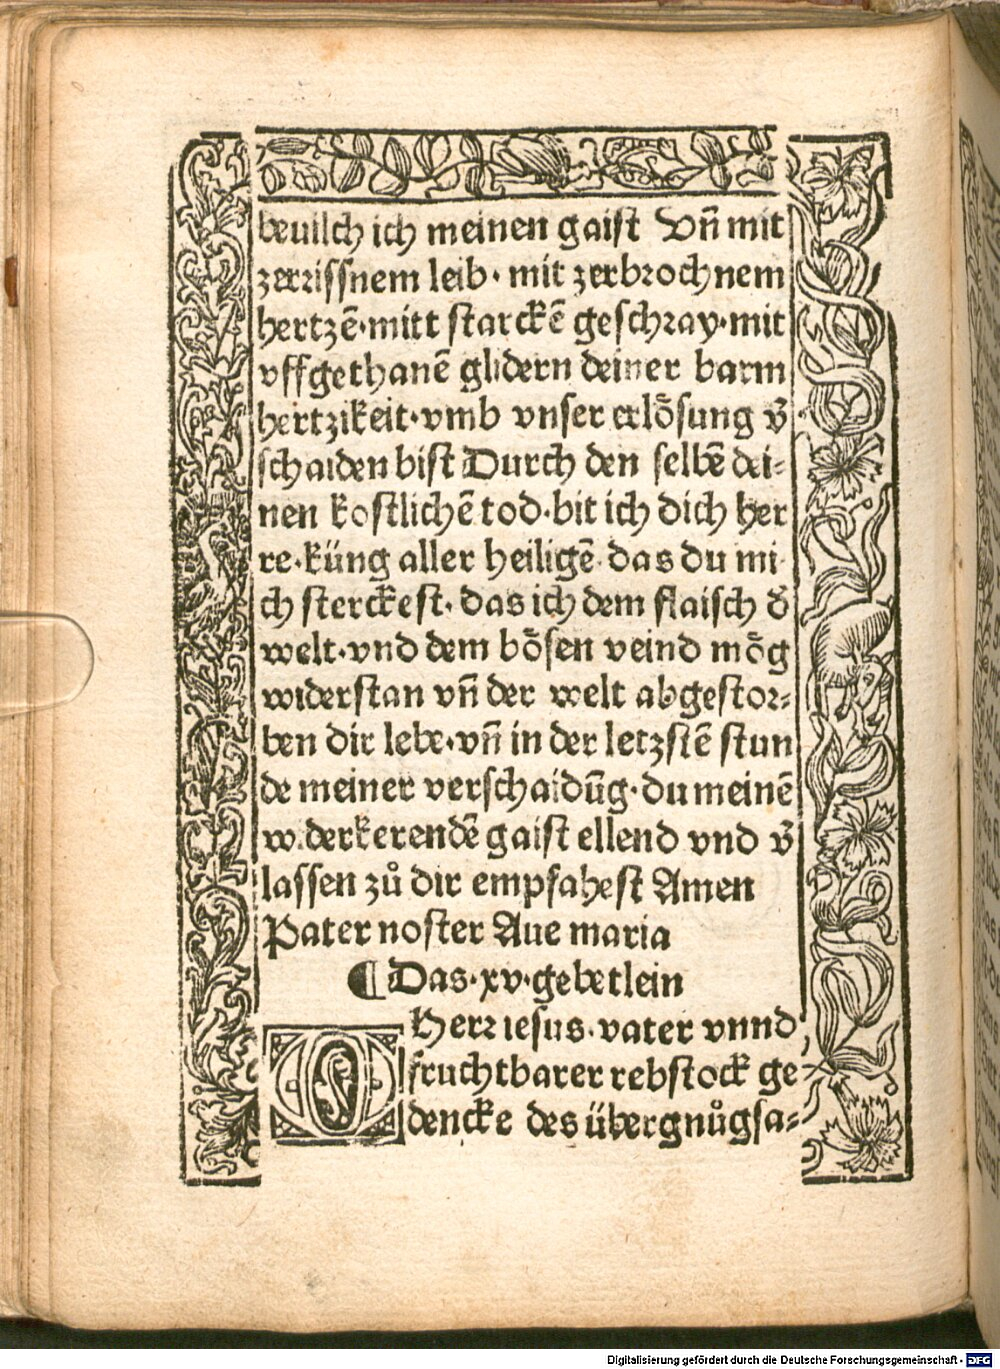 beuilch ich meinen gaist Vn̄ mit
zerrissnem leib · mit zerbrochnem
hertzē · mitt starckē geschray · mit
vffgethanē glidern deiner barm
hertzikeit · vmb vnser erlo̊sung v̄
schaiden bist Durch den selbē dei⸗
nen kostlichē tod · bit ich dich her
re · küng aller heiligē · das du mi
ch sterckest · das ich dem flaisch d̄
welt · vnd dem bo̊sen veind mo̊g
widerstan vn̄ der welt abgestor⸗
ben dir lebe · vn̄ in der letzstē stun
de meiner verschaidūg · du meinē
widerkerendē gaist ellend vnd v̄
lassen zů dir empfahest Amen
Pater noster Aue maria
¶ Das · xv · gebetlein
O Herr iesus · vater vnnd
fruchtbarer rebstock ge
dencke des übergnůgsa⸗
Digitalisierung gefördert durch die Deutsche Forschungsgemeinschaft - DFG